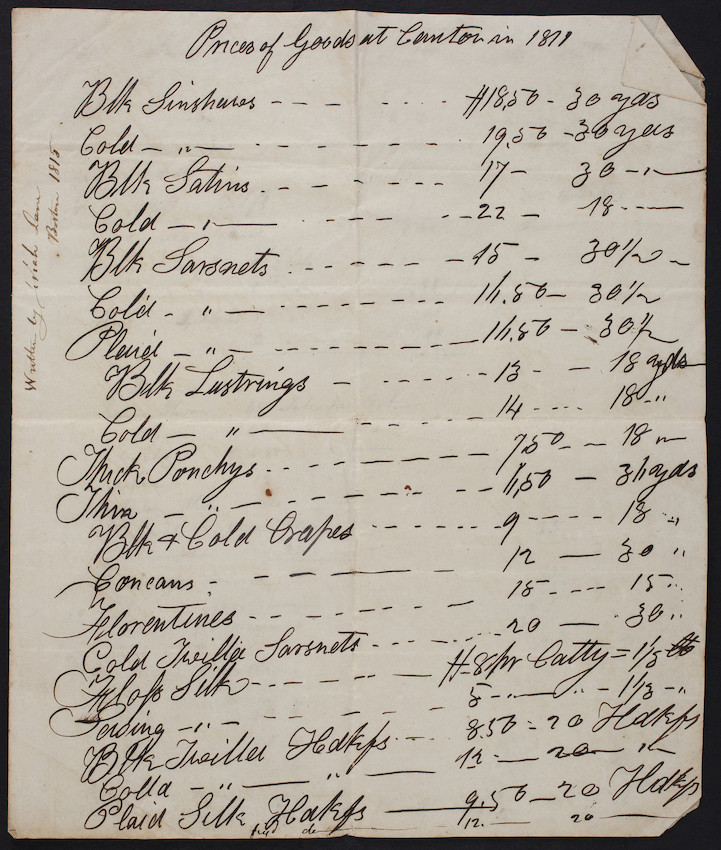 Prices of Goods at Canton in 1811
Blk Sinshaws - - - - - - - $18,50 - 30 yds
Cold - " - - - - - 19,50 - 30 yds
Blk Satins - - - - - - 17 - 30 - " -
Cold - " - - - - - 22 - 18 - - -
Blk Sarsnets - - - - - - 15 - 30½ -
Cold - " - - - - - - 14.50 - 30½
Plaid - " - - - - - - 14.50 - 30½
Blk Lustrings - - - - - 13 - - 18 yds
Cold - " - - - - - 14 - - - - 18 - "
Thick Ponchys - - - - - 7,50 - - 18 "
Thin - " - - - - - 4,50 - 34 yds
Blk & Cold Crapes - - - - - 9 - - - - 18 - "
Concans - - - - - 12 - 30 "
Florentines - - - - - - 15 - - - - 15 "
Cold Twilld Sarsnets - - - - - 20 - - 30 "
Floss Silk - - - - - $8 pr Catty = 1⅓ lb
Sewing - " - - - - - 5 - " - " - 1⅓ - "
Blk Twilld Hdkfs - - 8.50 - 20 Hdkfs
Colld - " - " - 12 - 20 - "
Plaid Silk Hdkfs - 9.50 - 20 Hdkfs
do - 12. - 20 -
Written by Lane
Boston 1815